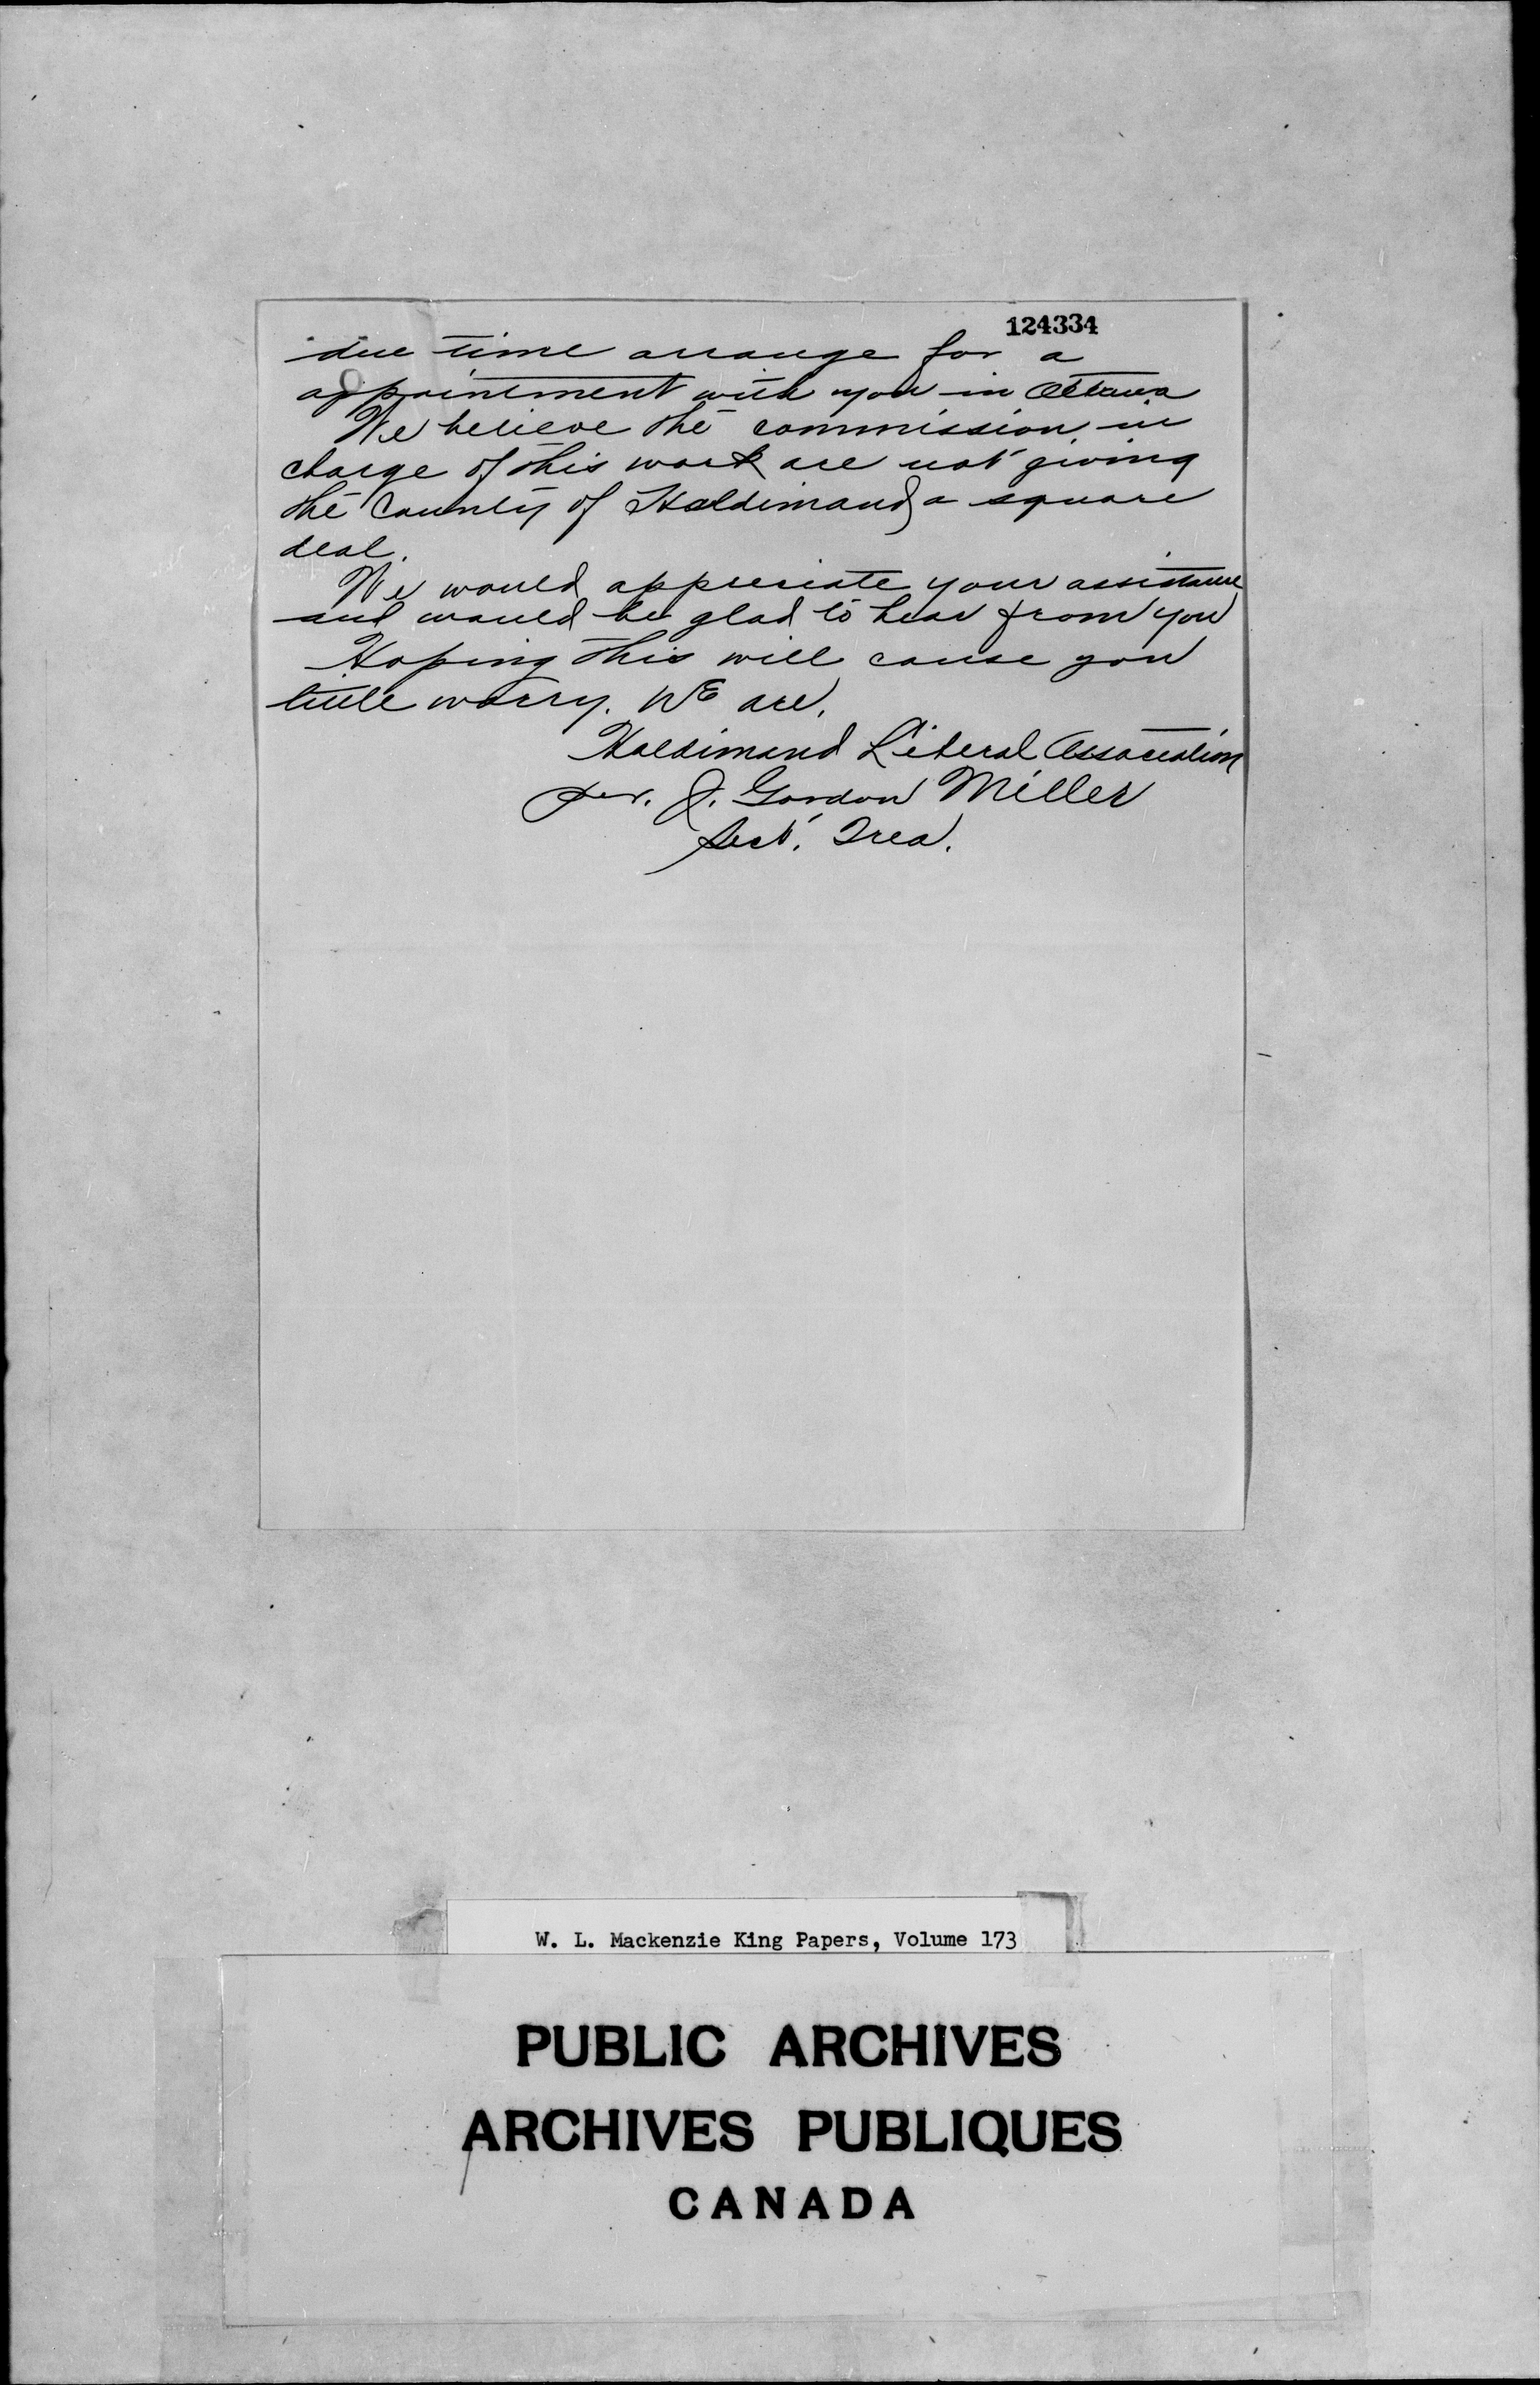 124334
due time arrange for a
appointment with you in Ottawa
We believe the commission in
charge of this work are not giving
the County of Haldimand a square
deal.
We would appreciate your assistance
and would be glad to hear from you
Hoping this will cause you
little worry. We are,
Haldimand Liberal Association
per. J. Gordon Miller
Sect. Trea.
W. L. Mackenzie King Papers, Volume 173
PUBLIC ARCHIVES
ARCHIVES PUBLIQUES
CANADA